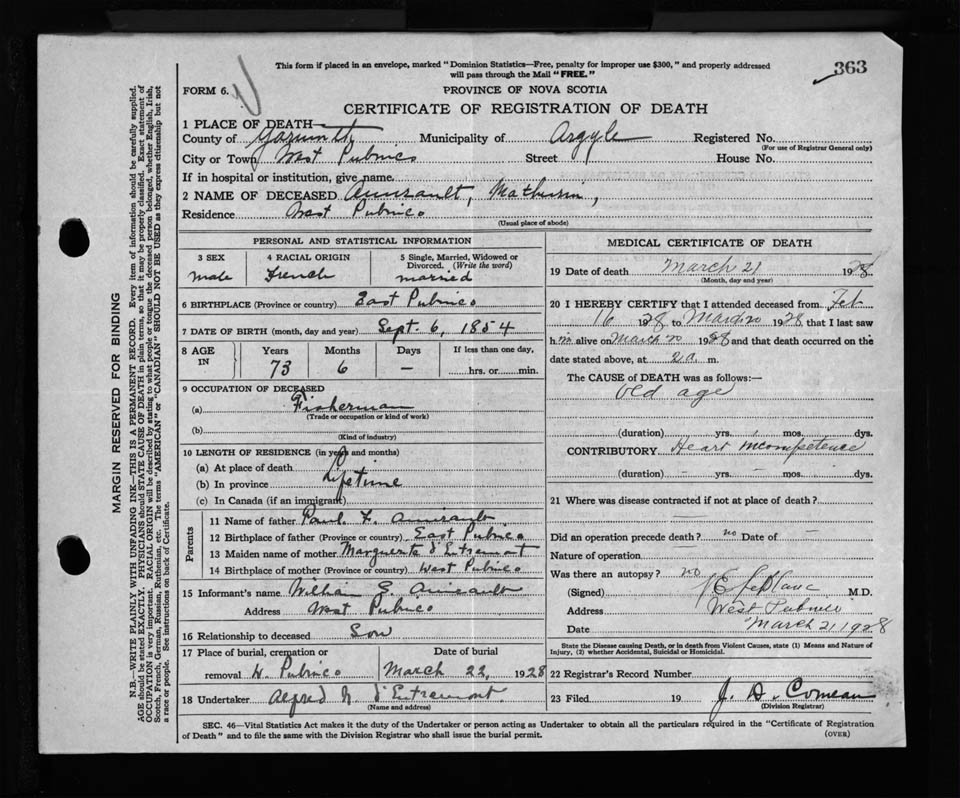 This form if placed in an envelope, marked "Dominion Statistics—Free, penalty for improper use $300," and properly addressed
will pass through the Mail "FREE."
363
FORM 6.
PROVINCE OF NOVA SCOTIA
CERTIFICATE OF REGISTRATION OF DEATH
1 PLACE OF DEATH—
County of Yarmouth Municipality of Argyle Registered No.
(For use of Registrar General only)
City or Town West Pubnico Street House No.
If in hospital or institution, give name
2 NAME OF DECEASED Amirault, Mathurin,
Residence West Pubnico
(Usual place of abode)
PERSONAL AND STATISTICAL INFORMATION
3 SEX 4 RACIAL ORIGIN 5 Single, Married, Widowed or
Divorced. (Write the word)
Male French married
6 BIRTHPLACE (Province or country) East Pubnico
7 DATE OF BIRTH (month, day and year) Sept. 6, 1854
8 AGE IN Years Months Days If less than one day,
73 6 — hrs. or min.
9 OCCUPATION OF DECEASED
(a) Fisherman
(Trade or occupation or kind of work)
(b)
(Kind of industry)
10 LENGTH OF RESIDENCE (in years and months)
(a) At place of death
(b) In province Lifetime
(c) In Canada (if an immigrant)
Parents
11 Name of father Paul F. Amirault
12 Birthplace of father (Province or country) East Pubnico
13 Maiden name of mother Marguerite d'Entremont
14 Birthplace of mother (Province or country) West Pubnico
15 Informant's name William E. Amirault
Address West Pubnico
16 Relationship to deceased Son
17 Place of burial, cremation or Date of burial
removal W. Pubnico March 22, 1928
18 Undertaker Alfred N. d'Entremont
(Name and address)
MEDICAL CERTIFICATE OF DEATH
19 Date of death March 21 1928
(Month, day and year)
20 I HEREBY CERTIFY that I attended deceased from Feb
16 1928 to March 20 1928, that I last saw
h im alive on March 20 1928 and that death occurred on the
date stated above, at 2 a. m.
The CAUSE of DEATH was as follows:—
Old age
(duration) yrs. mos. dys.
CONTRIBUTORY Heart incompetence
(duration) — yrs. — mos. — dys.
21 Where was disease contracted if not at place of death?
Did an operation precede death? no Date of —
Nature of operation
Was there an autopsy? no
(Signed) J E LeBlanc M.D.
Address West Pubnico
Date March 21 1928
State the Disease causing Death, or in death from Violent Causes, state (1) Means and Nature of
Injury, (2) whether Accidental, Suicidal or Homicidal.
22 Registrar's Record Number
23 Filed 19 J. D. Comeau
(Division Registrar)
SEC. 46—Vital Statistics Act makes it the duty of the Undertaker or person acting as Undertaker to obtain all the particulars required in the "Certificate of Registration
of Death" and to file the same with the Division Registrar who shall issue the burial permit.
(OVER)
MARGIN RESERVED FOR BINDING
N.B.—WRITE PLAINLY WITH UNFADING INK—THIS IS A PERMANENT RECORD. Every item of information should be carefully supplied.
AGE should be stated EXACTLY. PHYSICIANS should STATE CAUSE OF DEATH in plain terms, so that it may be properly classified. Exact statement of
OCCUPATION is very important. RACIAL ORIGIN will be described by stating to what people or tongue the deceased person belonged, whether English, Irish,
Scotch, French, German, Russian, Ruthenian, etc. The terms "AMERICAN" or "CANADIAN" SHOULD NOT BE USED as they express citizenship but not
a race or people. See instructions on back of Certificate.